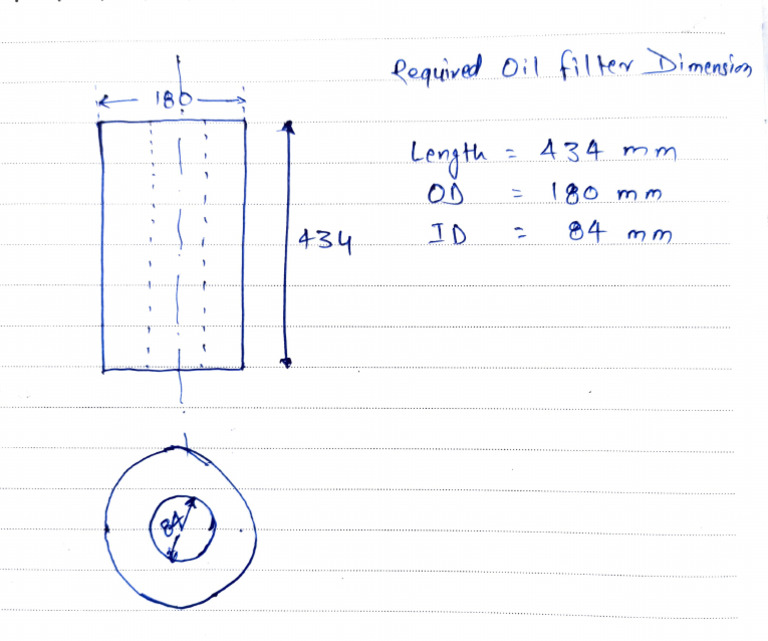 Required Oil filter Dimension
180
Length = 434 mm
OD = 180 mm
ID = 84 mm
434
84